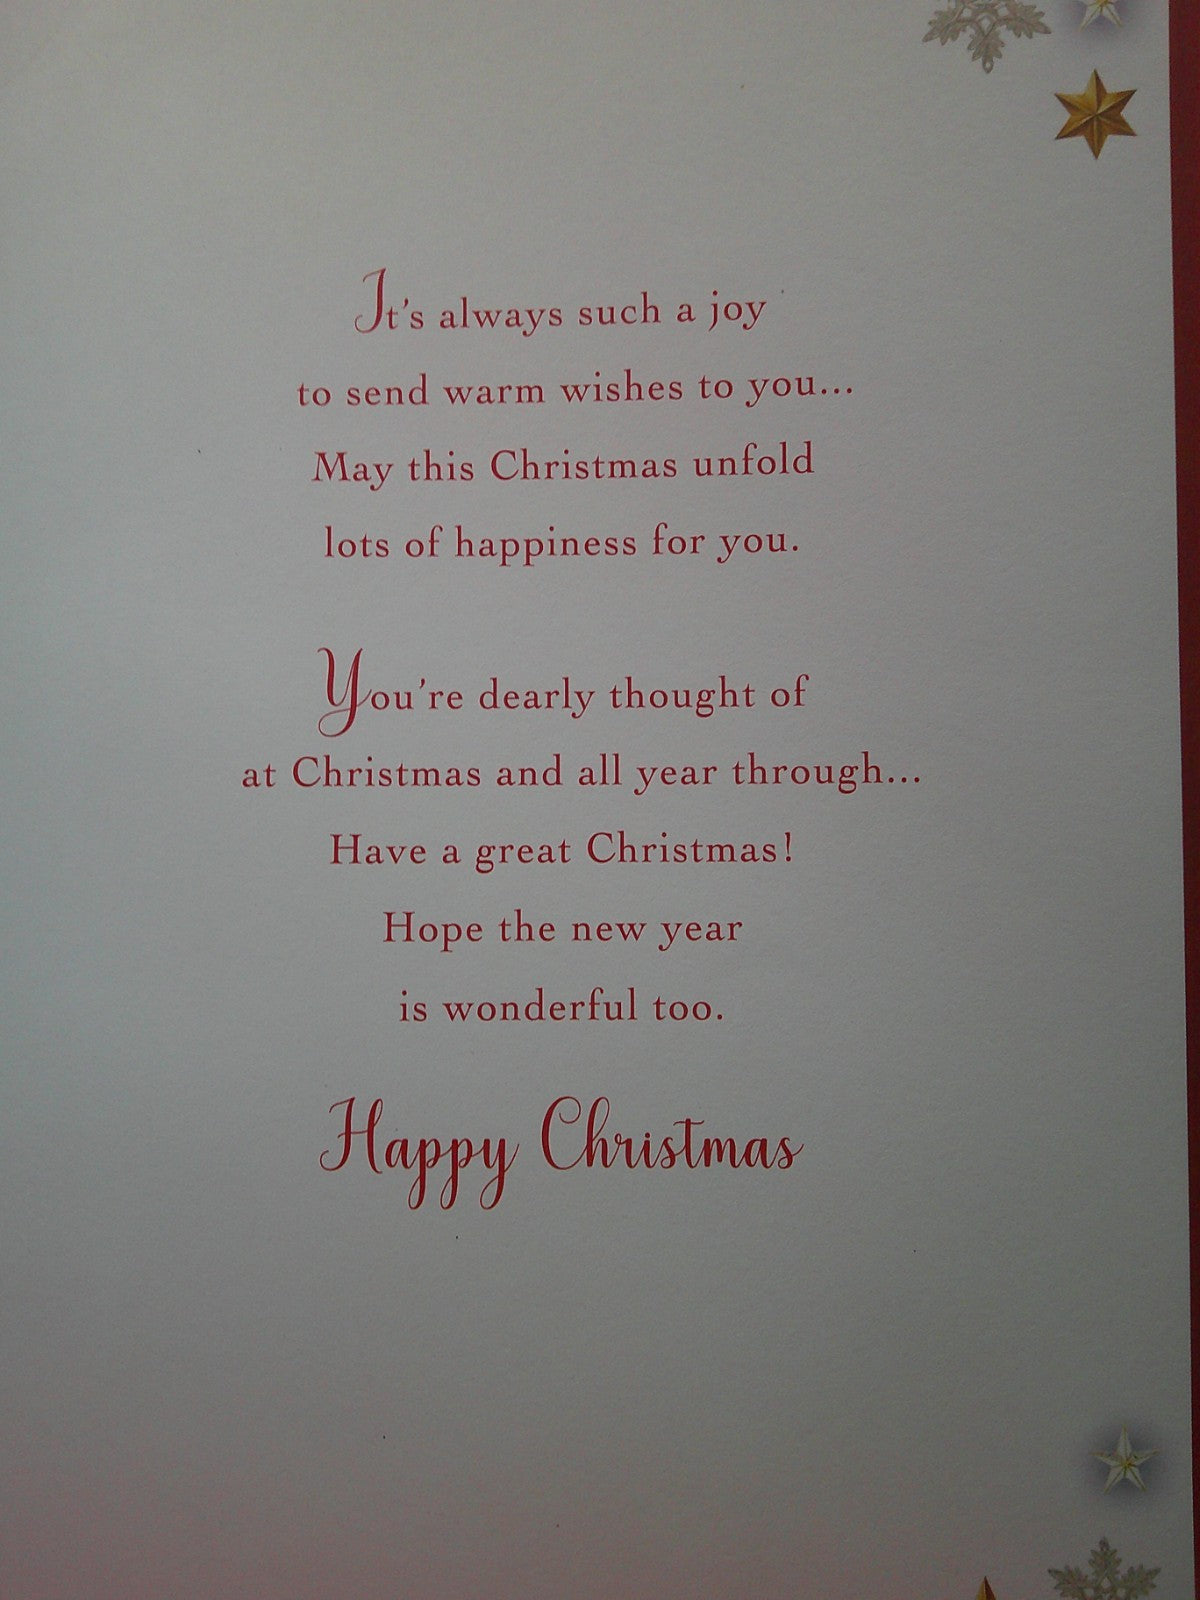 It's always such a joy
to send warm wishes to you...
May this Christmas unfold
lots of happiness for you.
You're dearly thought of
at Christmas and all year through...
Have a great Christmas!
Hope the new year
is wonderful too.
Happy Christmas